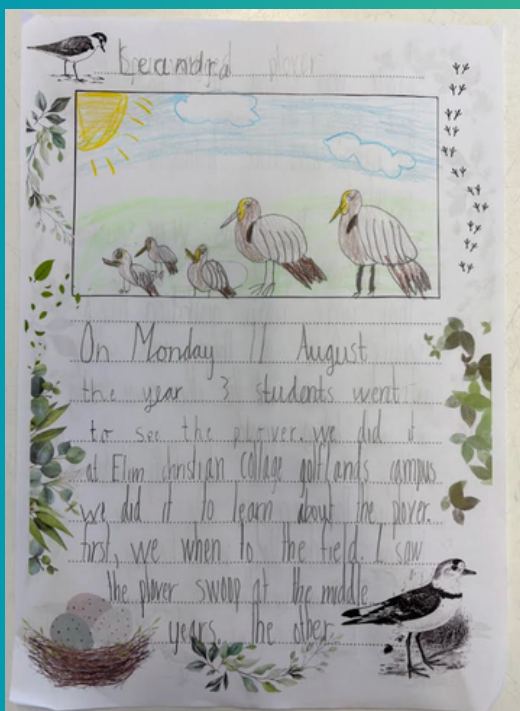 plover
On Monday 11 August
the year 3 students went
to see the plover. we did it
at Elim christian collage golflands campus
we did it to learn about the plover.
first, we when to the field. I saw
the plover swoop at the middle
years. The other